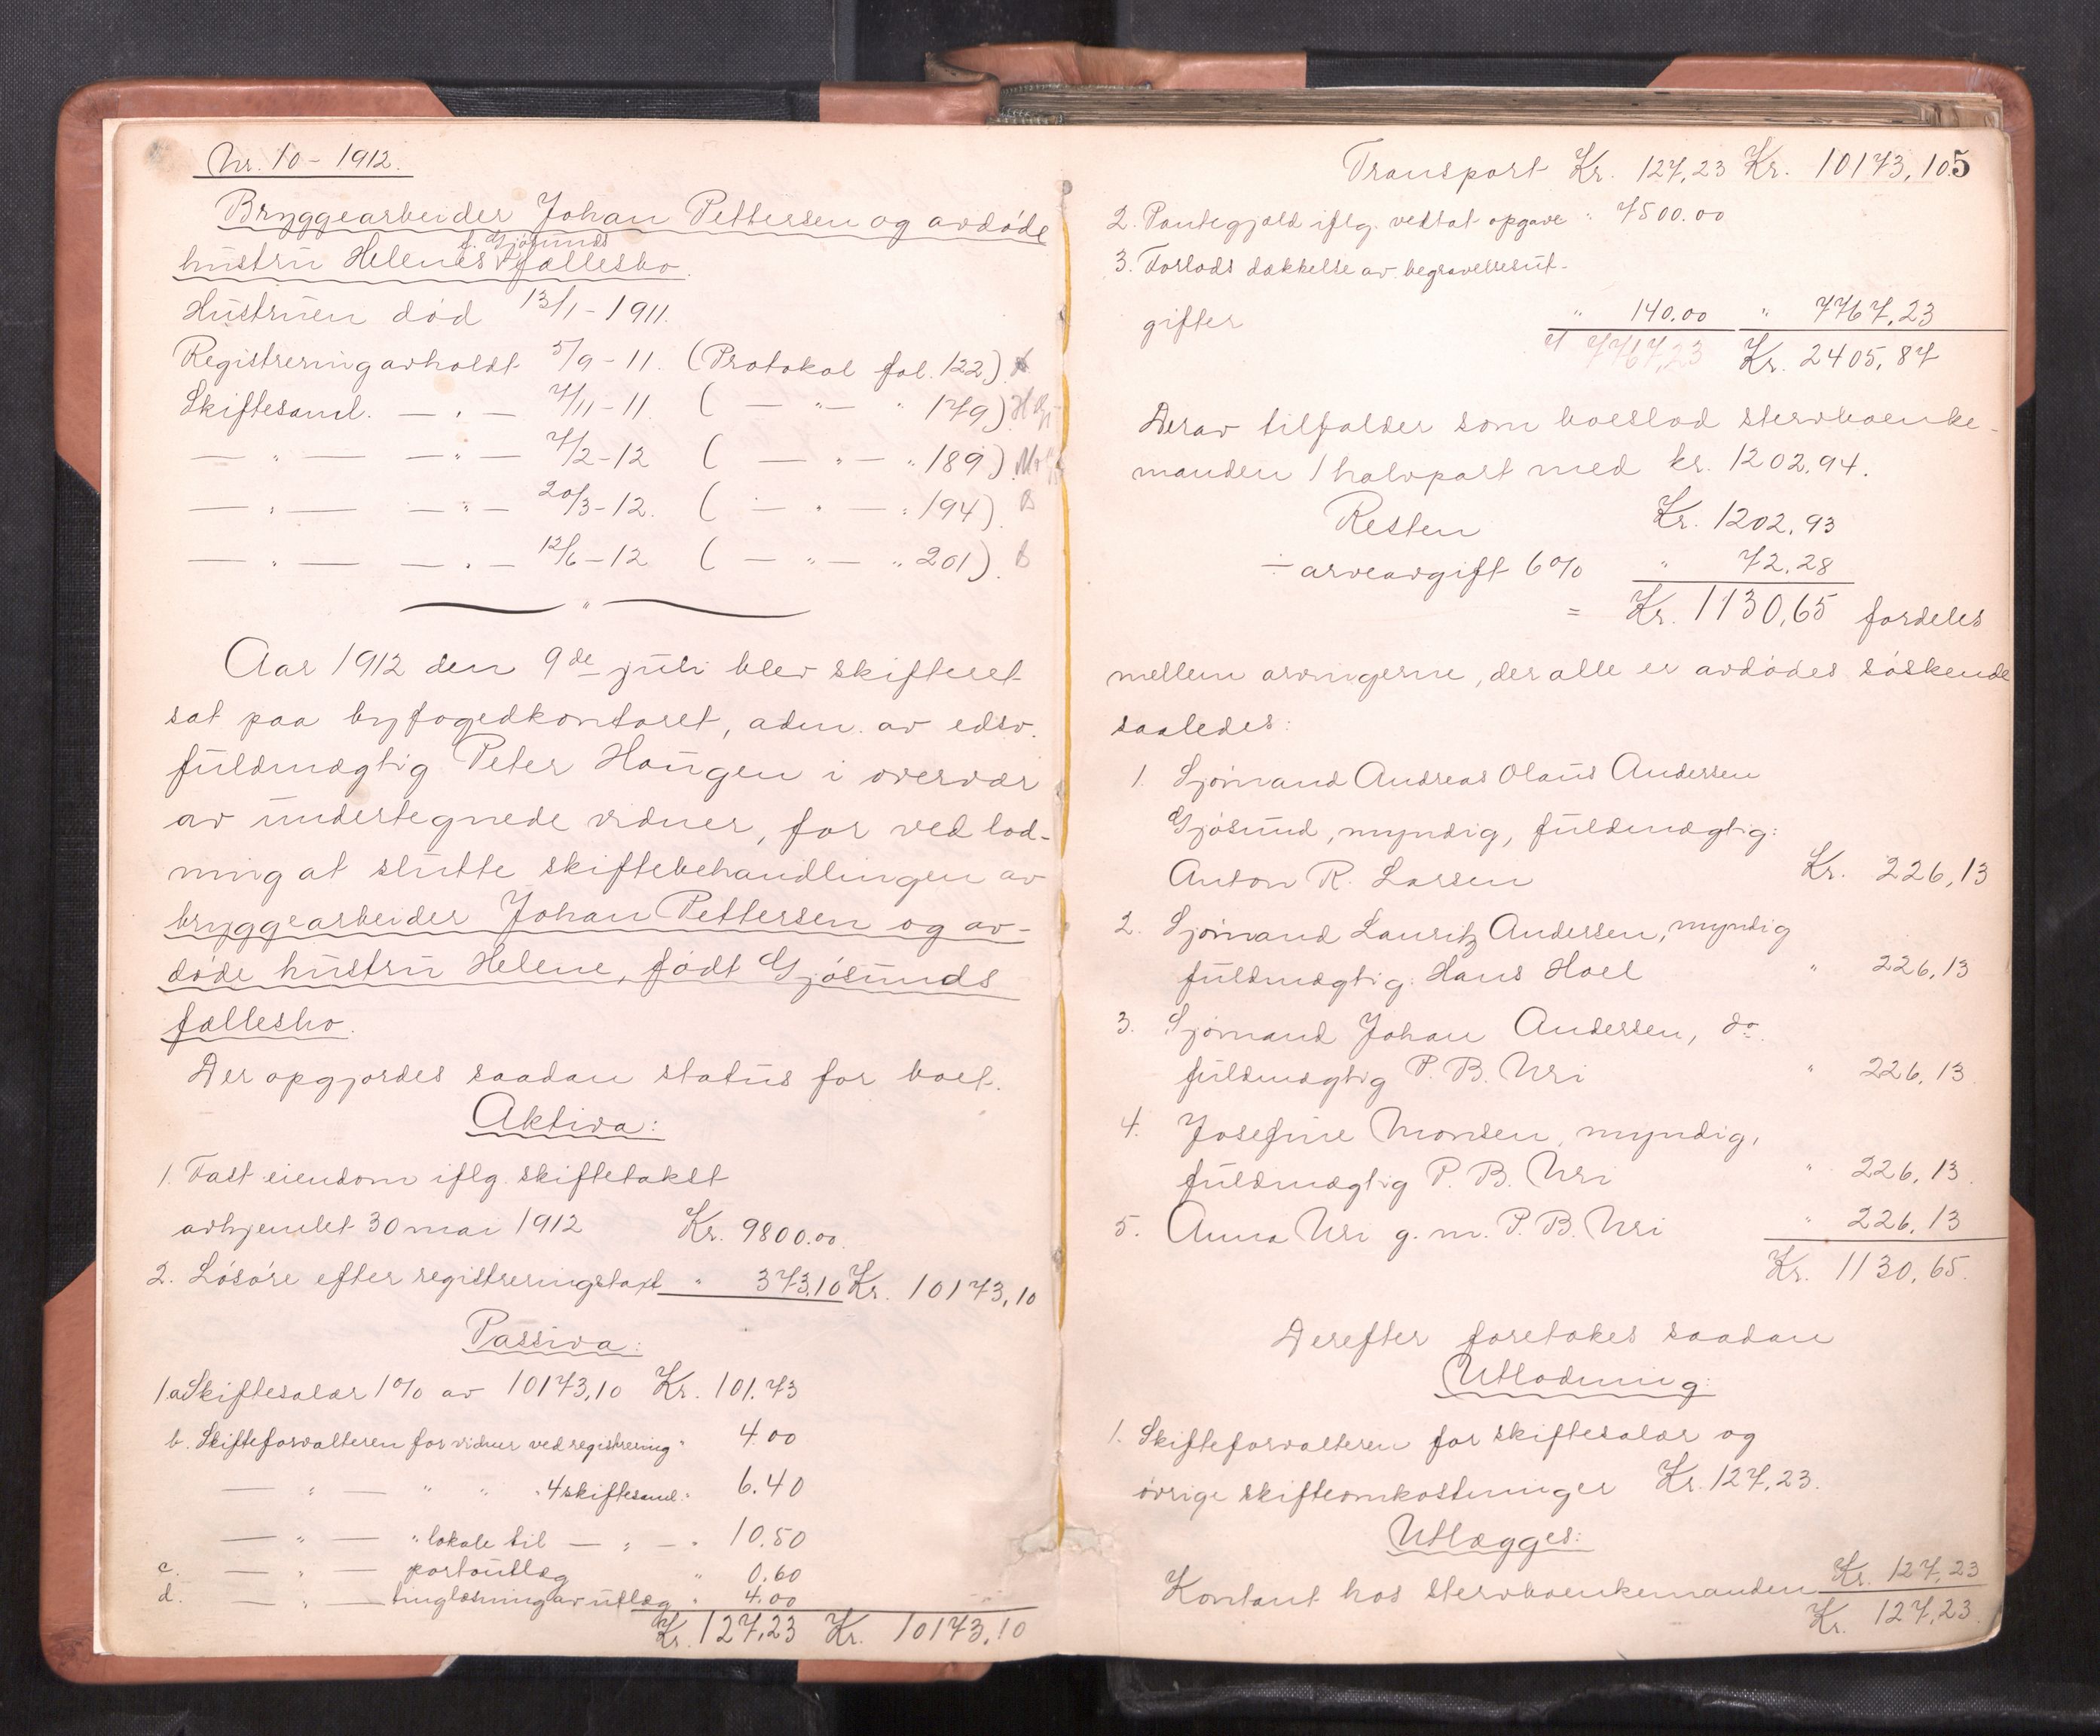 Nr. 10 – 1912.
Bryggearbeider Johan Pettersen og avdøde
f. Gjøsunds
hustru Helenes fællesbo.
Hustruen død 13/1 – 1911.
Registrering avholdt 5/9 – 11. (Protokol fol. 122).
Skiftesaml. — „ — 7/11 – 11. ( — „ — „ 179).
— „ — — „ — 7/2 – 12 ( — „ — „ 189).
— „ — — „ — 20/3 – 12. ( — „ — „ 194). B
— „ — — „ — 12/6 – 12 ( — „ — „ 201). B
„
Aar 1912 den 9de juli blev skifteret
sat paa byfogedkontoret, adm. av edsv.
fuldmægtig Peter Haugen i overvær
av undertegnede vidner, for ved lod-
ning at slutte skiftebehandlingen av
bryggearbeider Johan Pettersen og av-
døde hustru Helene, født Gjøsunds
fællesbo.
Der opgjordes saadan status for boet.
Aktiva:
1. Fast eiendom iflg. skiftetakst
avhjemlet 30 mai 1912 Kr. 9800.00.
2. Løsøre efter registreringstaxt „ 373,10 Kr. 10173,10
Passiva:
1a Skiftesalær 1% av 10173,10 Kr. 101.73
b. Skifteforvalteren for vidner ved registrering „ 4.00
— „ — „ „ „ 4 skiftesaml. „ 6.40
— „ — „ lokale til — „ — „ 10.50
c. — „ — portoutlæg „ 0.60
d. — „ — tinglæsning av utlæg „ 4.00
Kr. 127,23 Kr. 10173,10
5
Transport Kr. 127,23 Kr. 10173,10
2. Pantegjæld iflg. vedtat opgave „ 7500.00
3. Forlods dækkelse av begravelsesut-
gifter „ 140.00 „ 7767,23
7767,23 Kr. 2405,87
Derav tilfalder som boeslod stervboenke-
manden 1 halvpart med kr. 1202,94.
Resten Kr. 1202,93
÷ arveavgift 6% „ 72,28
= Kr. 1130,65 fordeles
mellem arvingerne, der alle er avdødes søskende
saaledes:
1. Sjømand Andreas Olaus Andersen
Gjøsund, myndig, fuldmægtig:
Anton R. Larsen Kr. 226,13
2. Sjømand Lauritz Andersen, myndig
fuldmægtig: Hans Hoel „ 226,13
3. Sjømand Johan Andersen, do.
fuldmægtig P. B. Uri „ 226,13
4. Josefine Monsen, myndig,
fuldmægtig P. B. Uri „ 226,13.
5. Anna Uri g. m. P. B. Uri „ 226,13
Kr. 1130,65.
Derefter foretokes saadan
Utlodning:
1. Skifteforvalteren for skiftesalær og
øvrige skifteomkostninger Kr. 127,23.
Utlægges:
Kontant hos stervboenkemanden Kr. 127,23
Kr. 127,23.